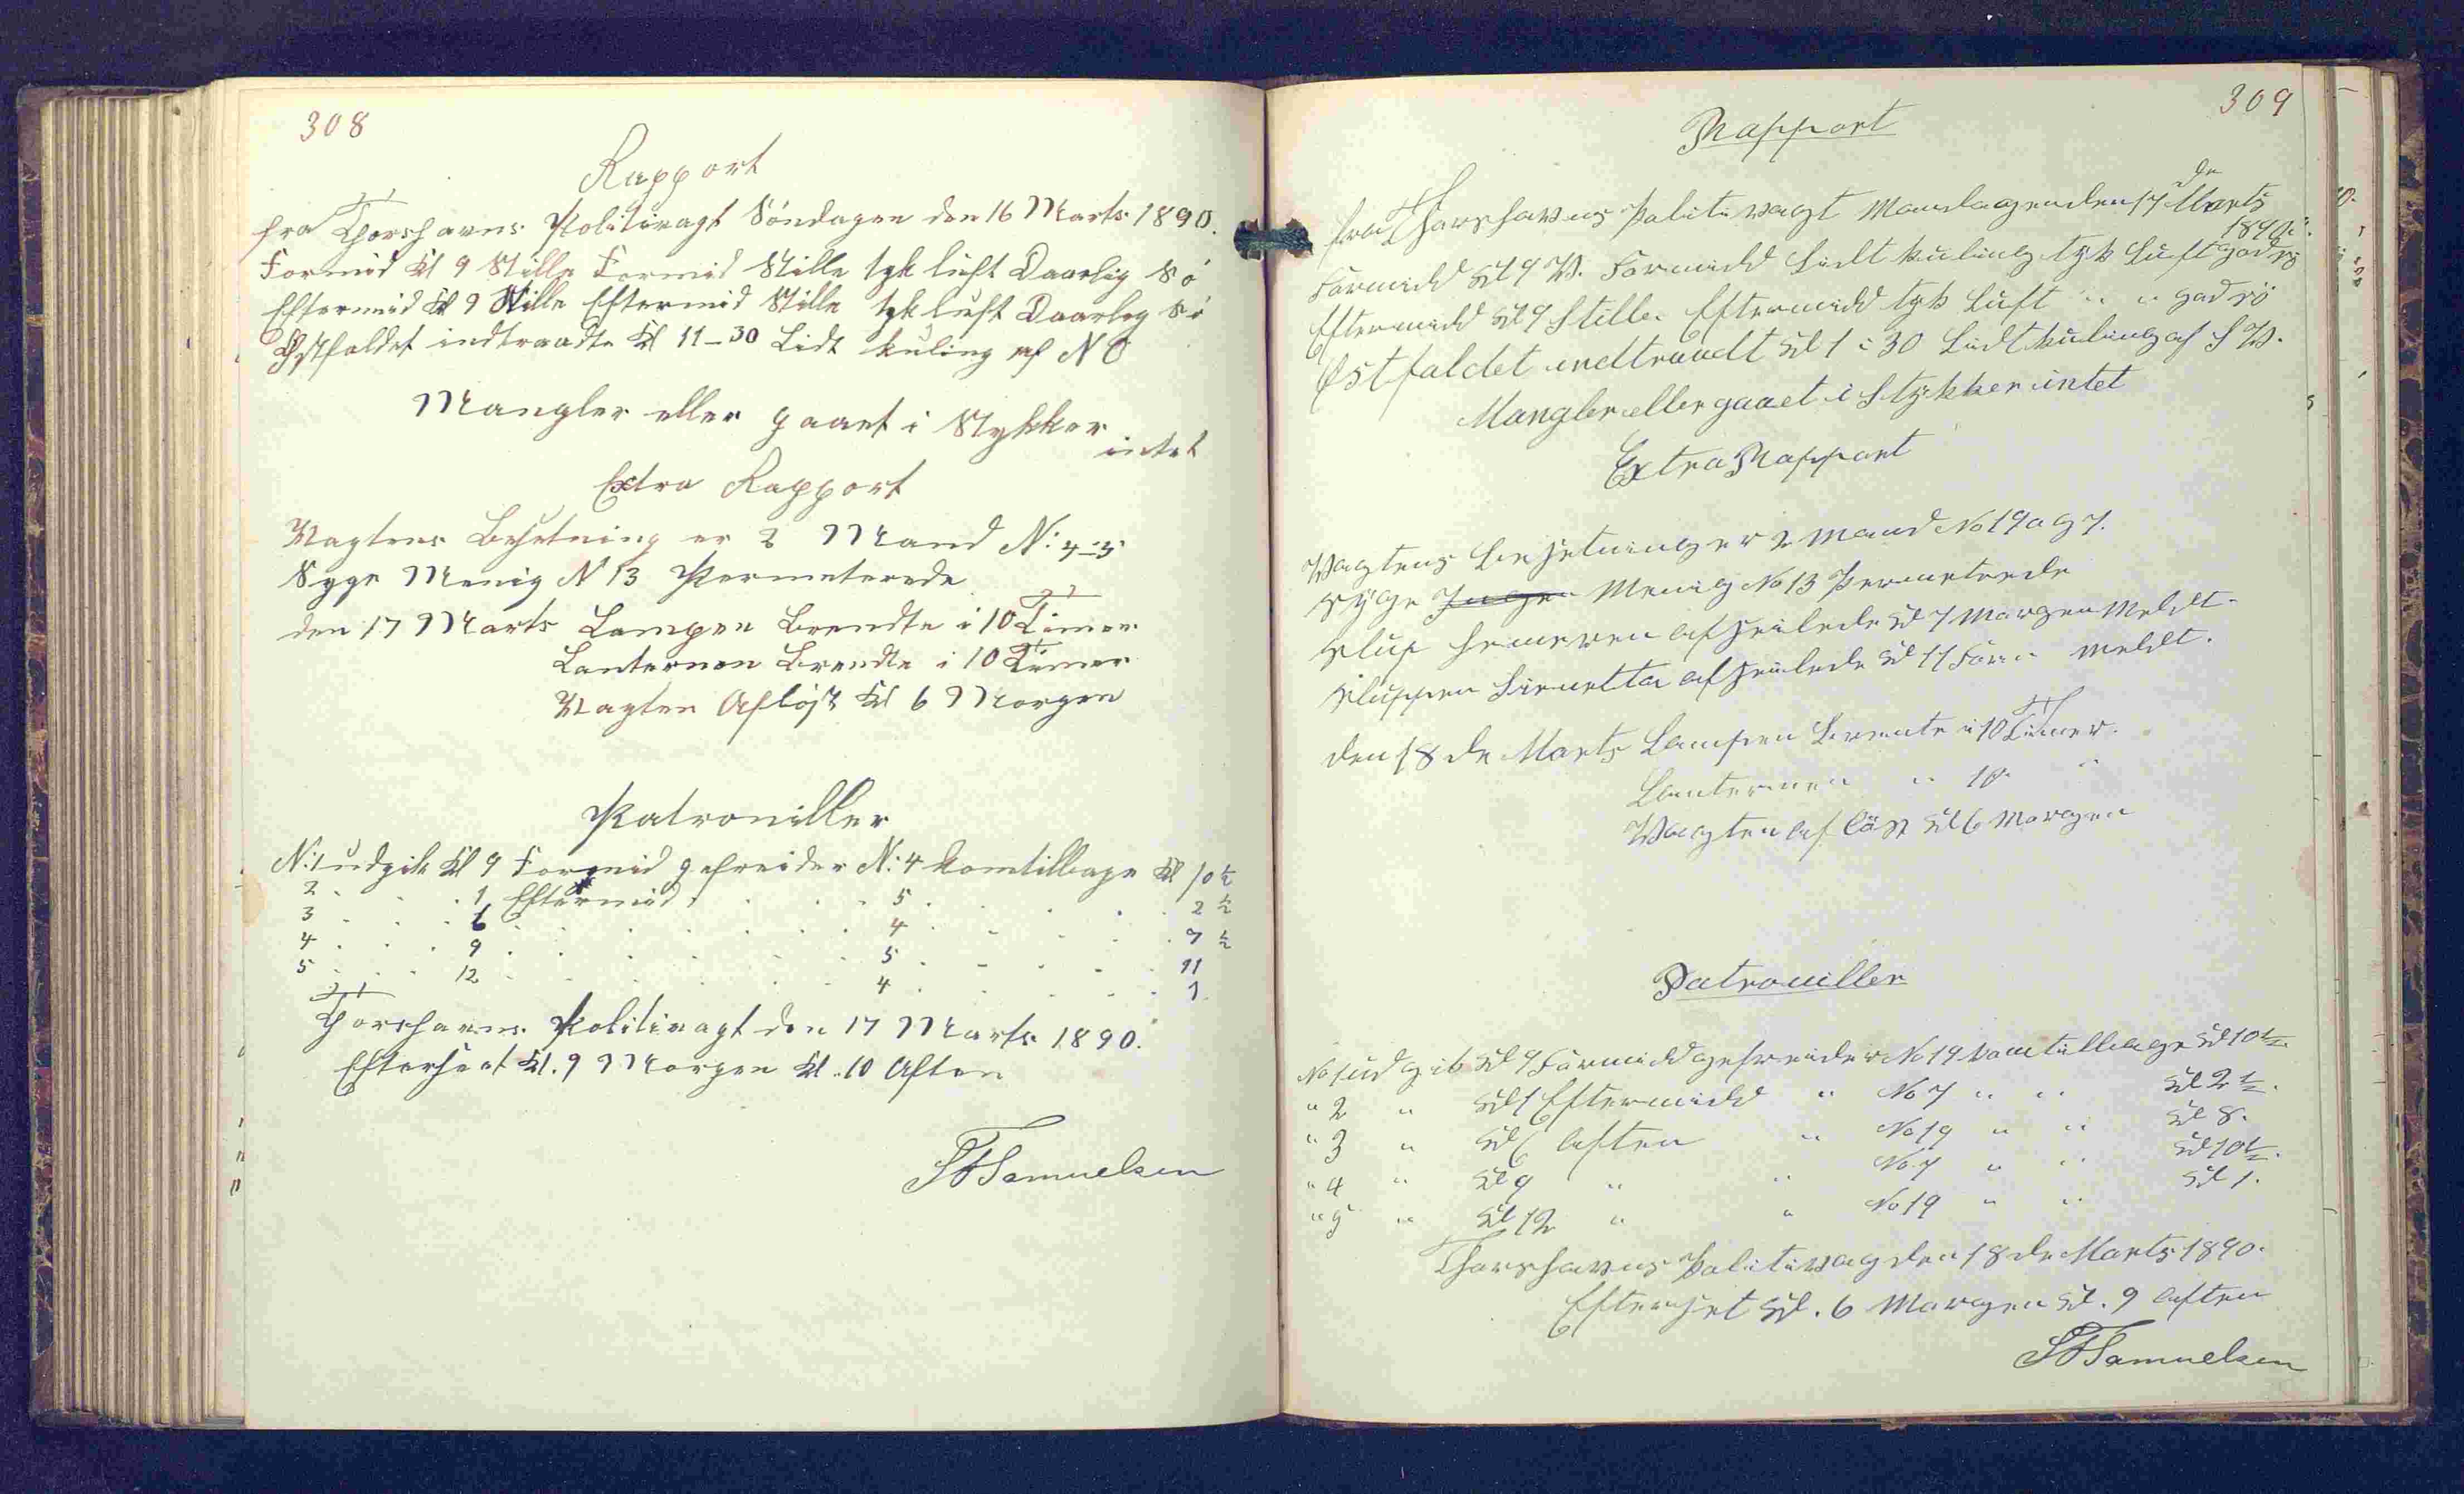 308
Rapport
fra Thorshavns Politivagt Söndagen den 16 Marts 1890.
Formid Kl 9 Stille Formid Stille tyk luft Daarlig Sö
Eftermid Kl 9 Stille Eftermid Stille tyk luft Daarlig Sö
Østfaldet indtraadte Kl 11-30 Lidt kuling af NO
Mangler eller gaaet i Stykker
intet
Extra Rapport
Vagtens Besetning er 2 Mand N: 4-5
Syge Menig N 13 Permeterede
den 17 Marts Lampen Brendte i 10 Timer
Lanternen Brendte i 10 Timer
Vagten Afløst Kl 6 Morgen
Patroniller
N:1 udgik Kl 9 Formid gefreider N:4 komtilbage Kl 10 ½
2 . . . 1 Eftermid . . . 5 . . . 2 ½
3 . . . 6 . . . 4 . . . 7 ½
4 . . . 9 . . . 5 . . . 11
5 . . . 12 . . . 4 . . . 1
Thorshavns Politivagt den 17 Marts 1890.
Efterseet Kl. 9 Morgen Kl. 10 Aften
Samuelsen
309
Rapport
fra Thorshavns Politivagt Mandagen den 17 de Marts
1890.
Formidd Kl 9 V. Formidd Lidt kuling tyk Luft god sö
Eftermidd Kl 9 Stille Eftermidd tyk Luft " " god sö
Østfaldet indtraadt Kl 1 : 30 Lidt kuling af S V.
Mangler eller gaaet i Stykker intet
Extra Rapport
Vagtens Besetning er 2 Mand No 19 og 7.
Syge Ingen Menig No 13 Permeterede
Slup afseilede Kl 7 Morgen Meldt.
Sluppen afseilede Kl 11 Form meldt.
den 18 de Marts Lampen Brente i 10 Timer.
Lanternen " 10 "
Vagten afløst Kl 6 Morgen
Patrouiller
No 1 udgik Kl 9 Formidd gefreider No 19 komtilbage Kl 10 ½
" 2 " Kl 1 Eftermidd " No 7 " " Kl 2 ½.
" 3 " Kl 6 Aften " No 19 " " Kl 8.
" 4 " Kl 9 " " No 7 " " Kl 10 ½.
" 5 " Kl 12 " " No 19 " " Kl 1.
Thorshavns Politivag den 18 de Marts 1890.
Efterset Kl. 6 Morgen Kl. 9 Aften
Samuelsen